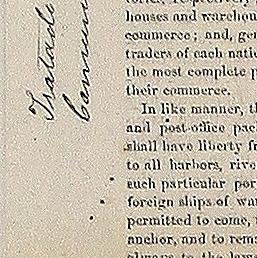 Tratado
houses and warehou
commerce; and, gen
traders of each natio
the most complete p
their commerce.
In like manner, th
and post-office pac
shall have liberty fr
to all harbors, rive
such particular por
foreign ships of war
permitted to come,
anchor, and to rema
always to the laws